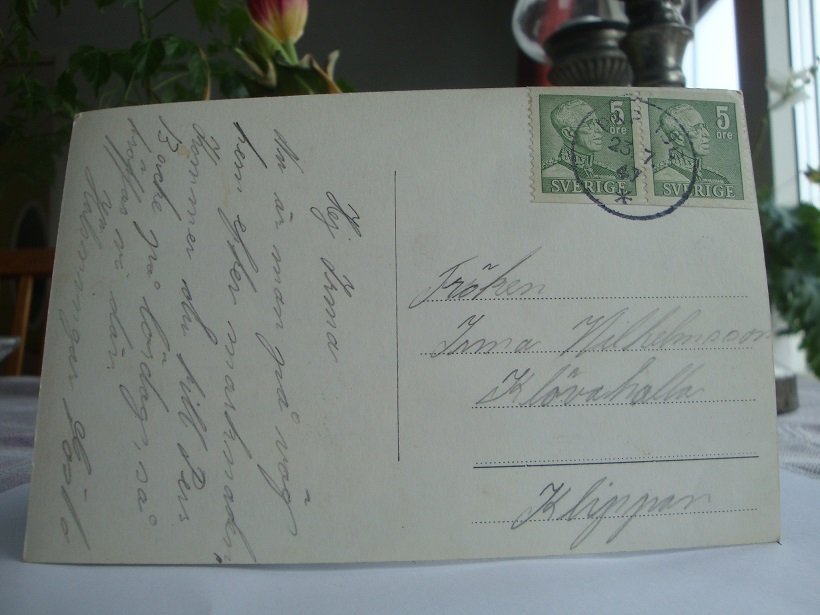 Hej Irma
Nu är man på väg
hem efter marknaden,
Kommer du till Pers
Backe på lördag, så
träffas vi där
Hälsningar Gösta
5 öre
SVERIGE
5 öre
SVERIGE
23
47
Fröken
Irma Wilhelmsson
Klövahalla
Klippan